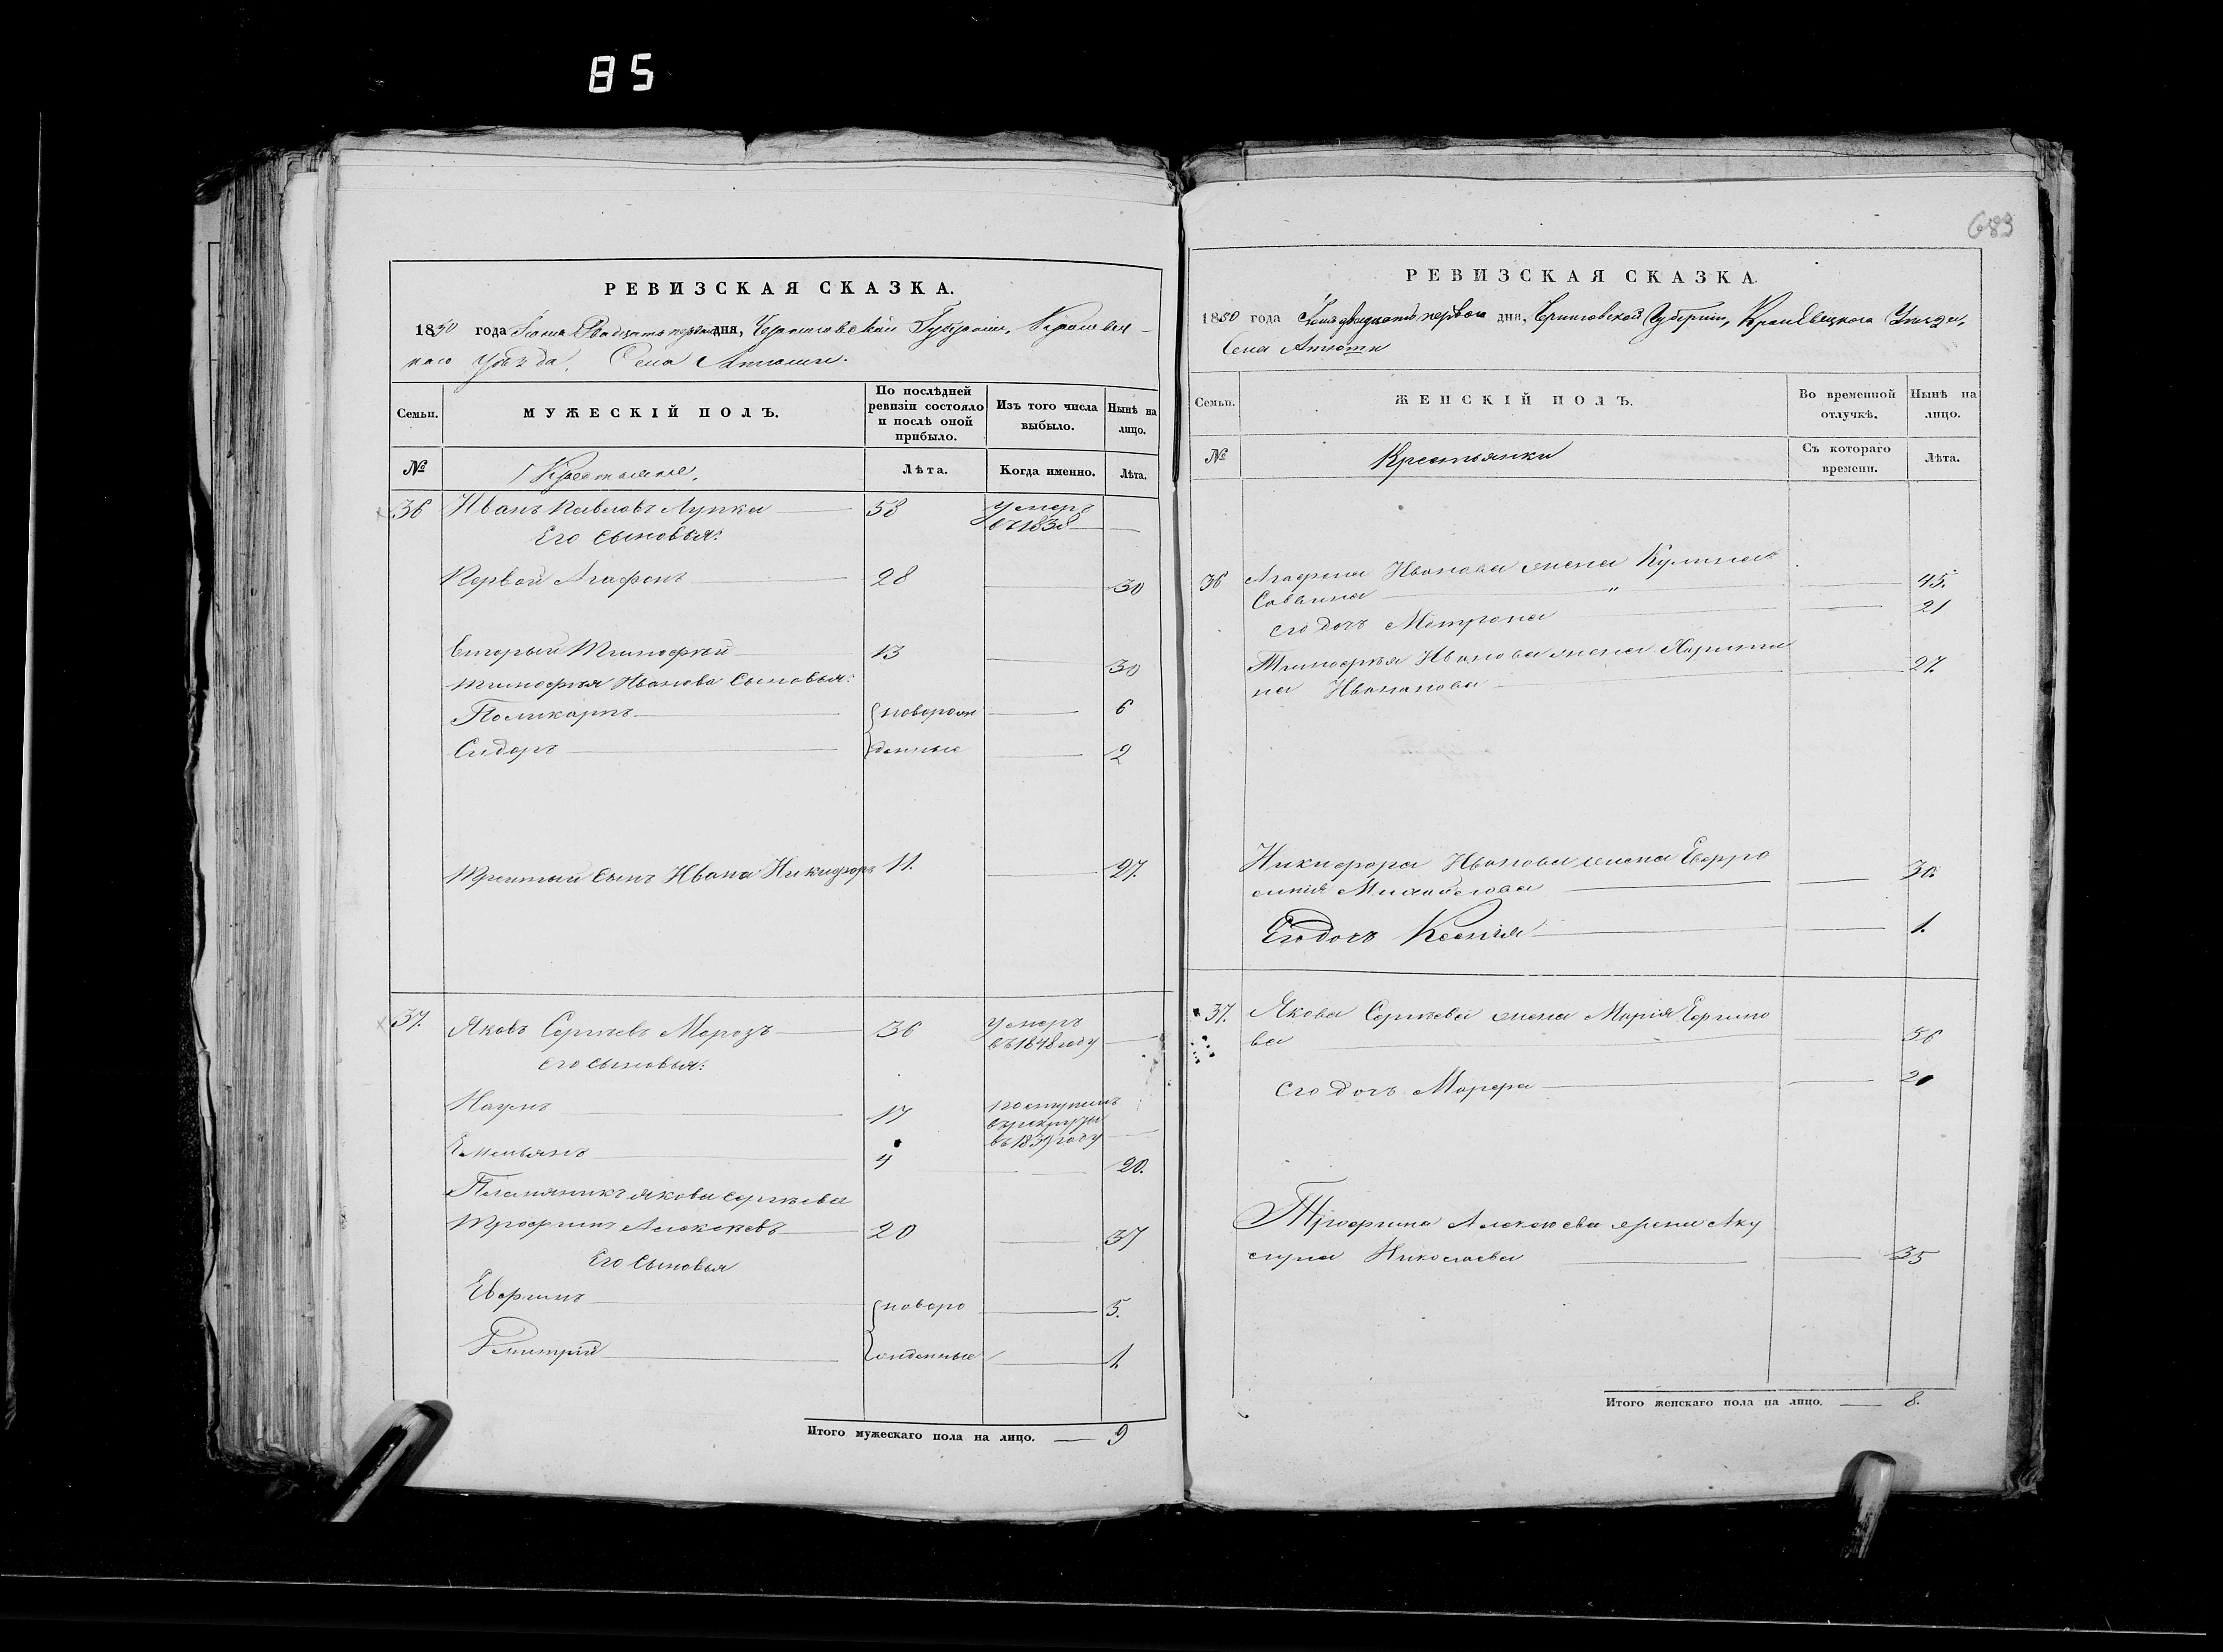 85
РЕВИЗСКАЯ СКАЗКА.
1850 года Іюня Двадцать перваго дня, Черниговской Губерніи, Кролевец-
каго Уѣзда, Села Атюши.
Семьи.
МУЖЕСКІЙ ПОЛЪ.
По послѣдней ревизіи состояло и послѣ оной прибыло.
Изъ того числа выбыло.
Нынѣ на лицо.
№
Крестьяне.
Лѣта.
Когда именно.
Лѣта.
36 Иванъ Павловъ Лупка 58 умеръ въ 1838
Его сыновья:
Первой Агафонъ 28 30
Вторый Тимофѣй 13 30
Тимофѣя Иванова сыновья:
Поликарпъ новорож 6
Сидоръ денные 2
Третий сынъ Ивана Никифоръ 11. 27.
37. Яковъ Сергѣевъ Морозъ 36 умеръ въ 1848 году
Его сыновья:
Наумъ 17 поступилъ в рекруты въ 1839 году
Емельянъ 4 20.
Племяникъ Якова Сергѣева
Трофимъ Алексѣевъ 20 37
Его сыновья
Евфимъ новоро 5.
Дмитрій жденные 1.
Итого мужескаго пола на лицо. 9
683
РЕВИЗСКАЯ СКАЗКА.
1850 года Іюня двадцать перваго дня, Черниговской Губерніи, Кролевецкаго Уѣзда,
Села Атюши
Семьи.
ЖЕНСКІЙ ПОЛЪ.
Во временной отлучкѣ.
Нынѣ на лицо.
№
Крестьянки
Съ котораго времени.
Лѣта.
36 Агафона Иванова жена Кулина
Саввина " 45.
его дочь Мотрона 21
Тимофѣя Иванова жена Харити
на Иванова 27.
Никифора Иванова жена Евфро
синія Михайлова 30.
Его дочь Ксенія 1.
37. Якова Сергѣева жена Марія Сергѣева
ва 56
его дочь Марфа 20
Трофима Алексѣева жена Аку
лина Николаева 35
Итого женскаго пола на лицо. 8.